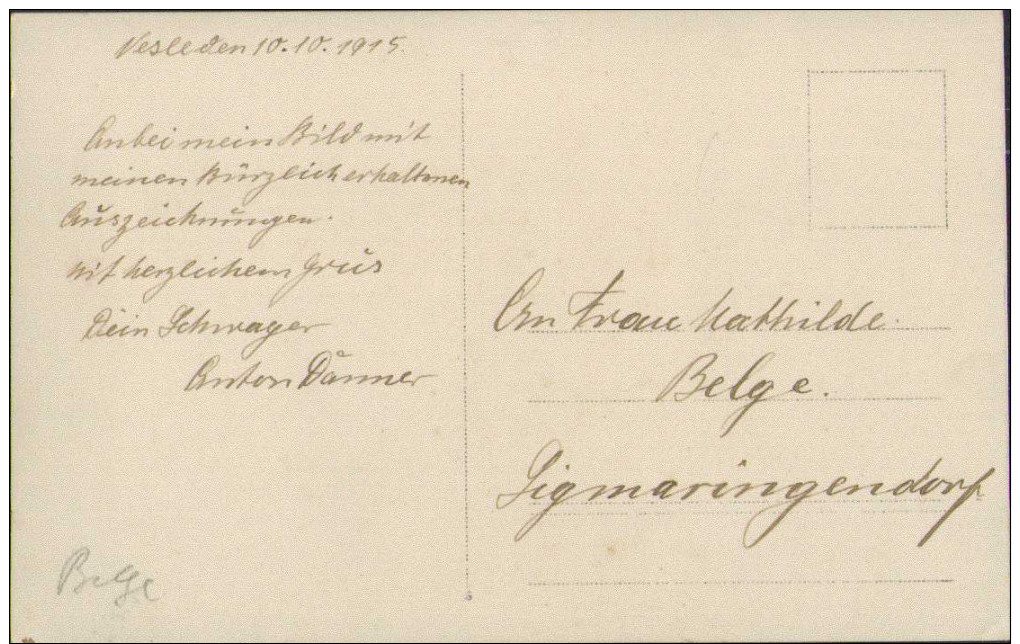 Vesleden 10.10.1915.
Anbei mein Bild mit
meinen kürzlich erhaltenen
Auszeichnungen.
Mit herzlichem Grüs
Dein Schwager
Anton Dänner
An Frau Mathilde.
Belge.
Sigmaringendorf
Belge